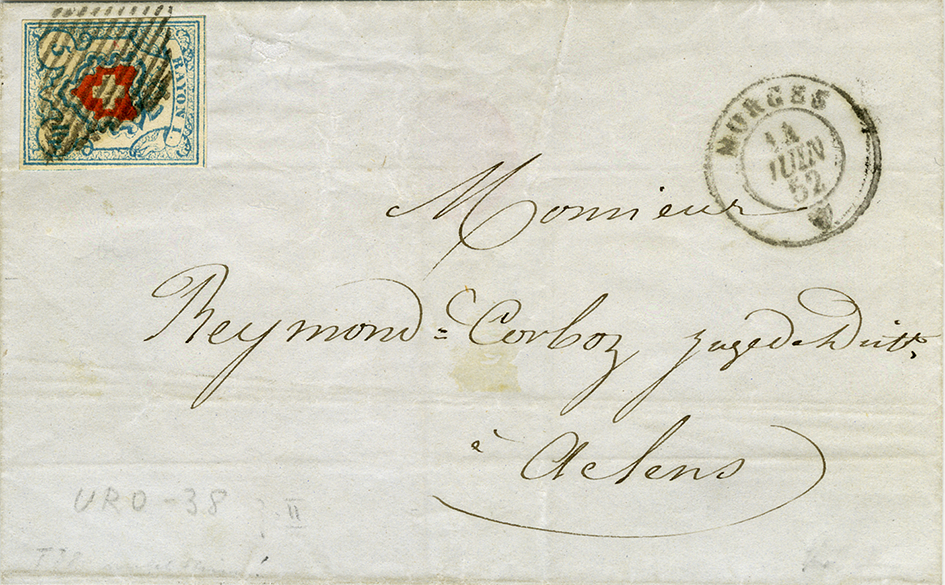 5
RAYON I
MORGES
14
JUIN
52
Monsieur
Reymond=Corboz juge de
à Aclens
URO-38
II